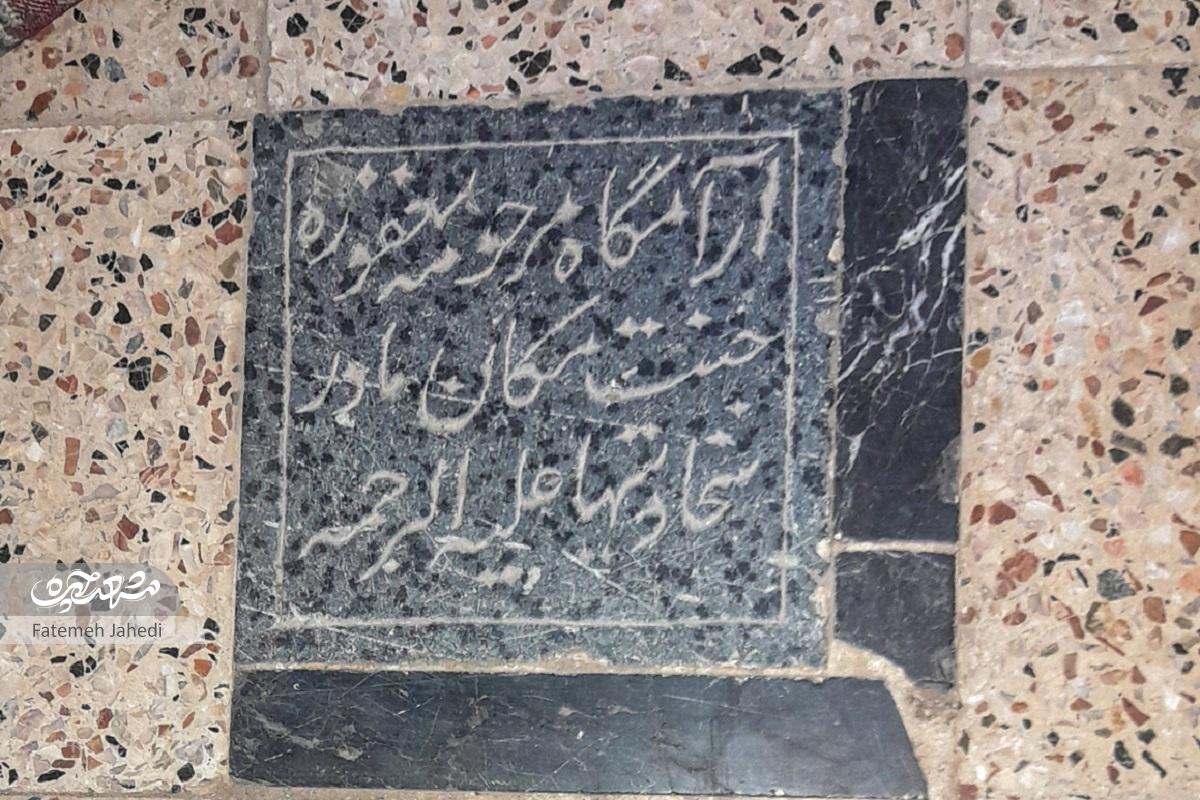 آرامگاه مرحومه مغفوره
جنت مکان مادر
سجادیها علیه الرحمه
Fatemeh Jahedi